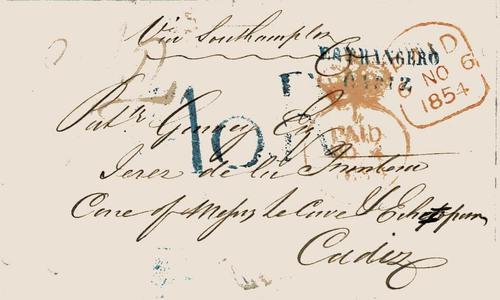 Via Southampton
ESTRANGERO
CADIZ
PAID
NO 6
1854
PAID
Patk Esq
Jerez de la Frontera
Care of Messrs Le Cave &
Cadiz